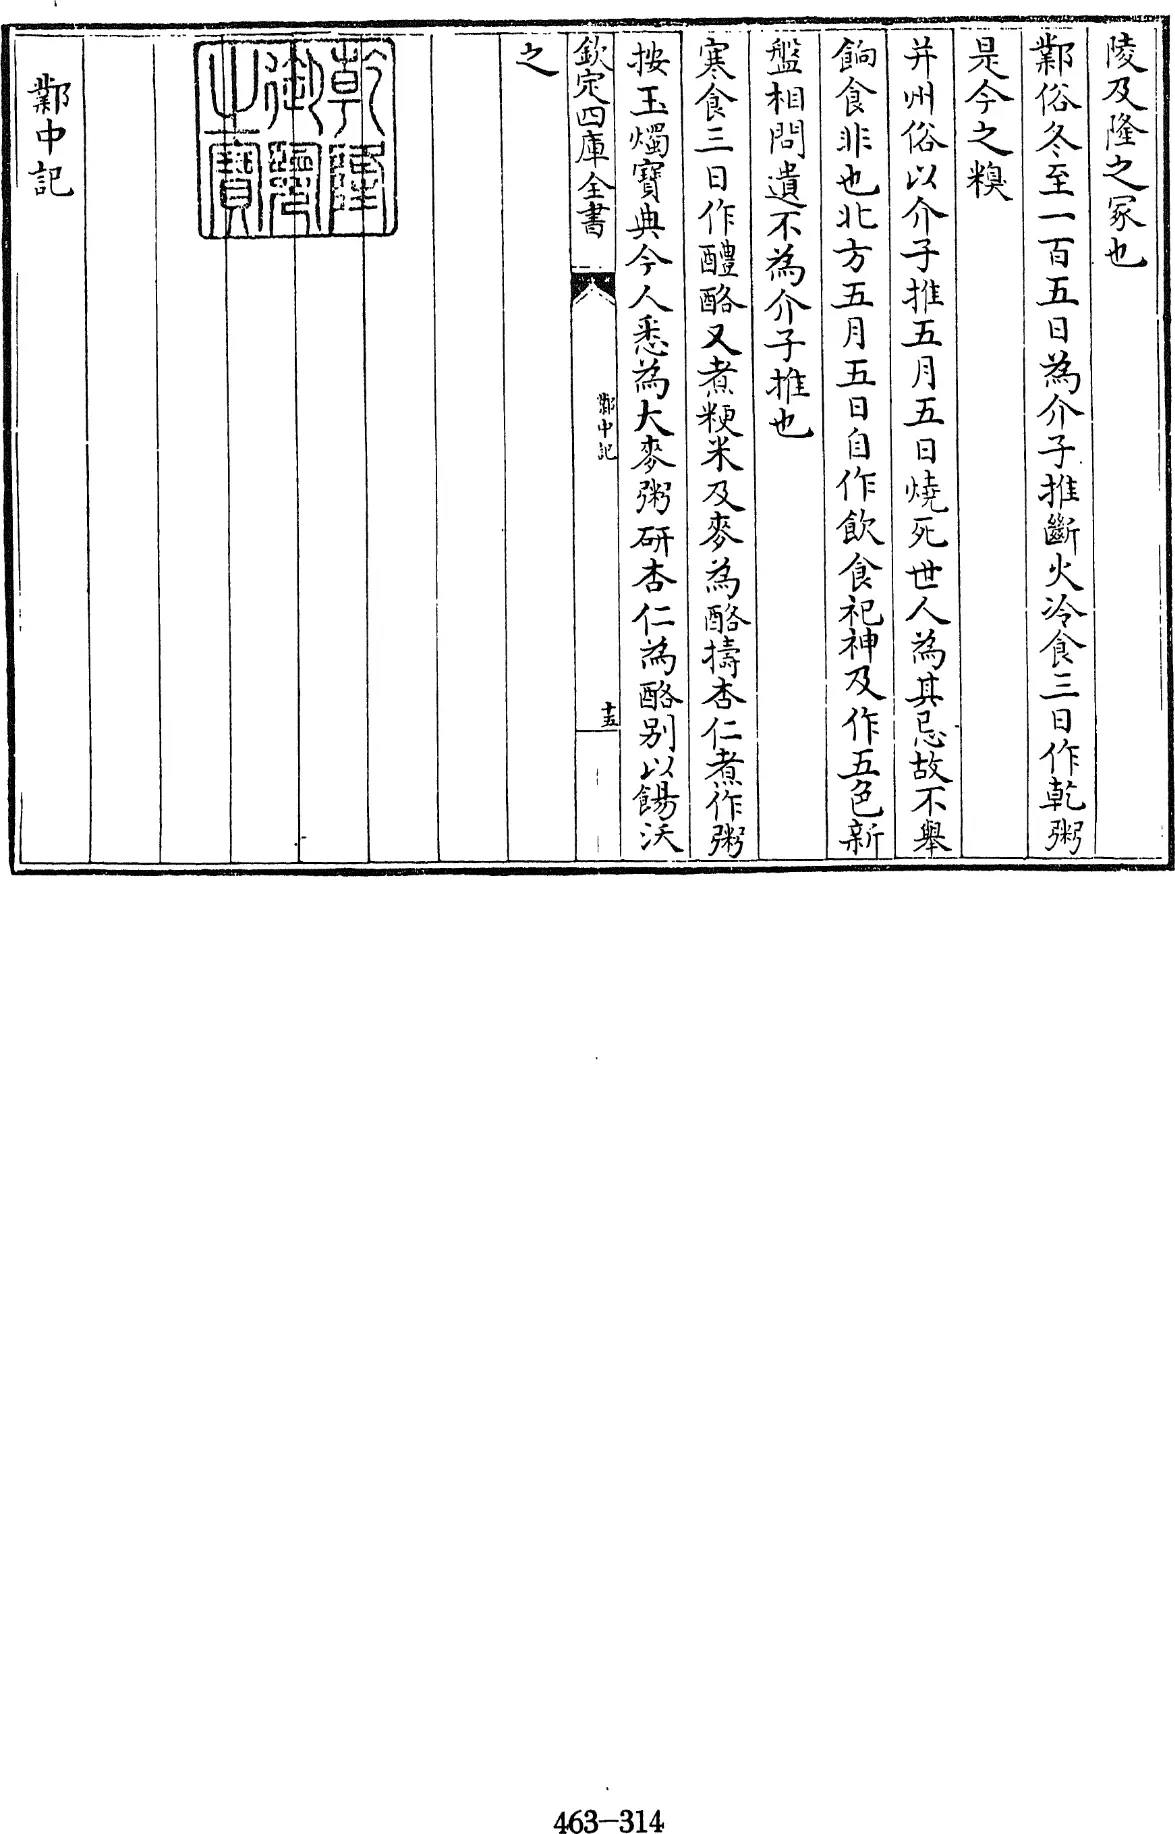 陵及隆之冢也
鄴俗冬至一百五日為介子推斷火冷食三日作乾粥
是今之糗
并州俗以介子推五月五日燒死世人為其忌故不舉
餉食非也北方五月五日自作飲食祀神及作五色新
盤相問遺不為介子推也
寒食三日作醴酪又煮粳米及麥為酪擣杏仁煮作粥
按玉燭寶典今人悉為大麥粥研杏仁為酪别以餳沃
欽定四庫全書
鄴中記
十五
之
乾隆御覽之寶
鄴中記
463-314